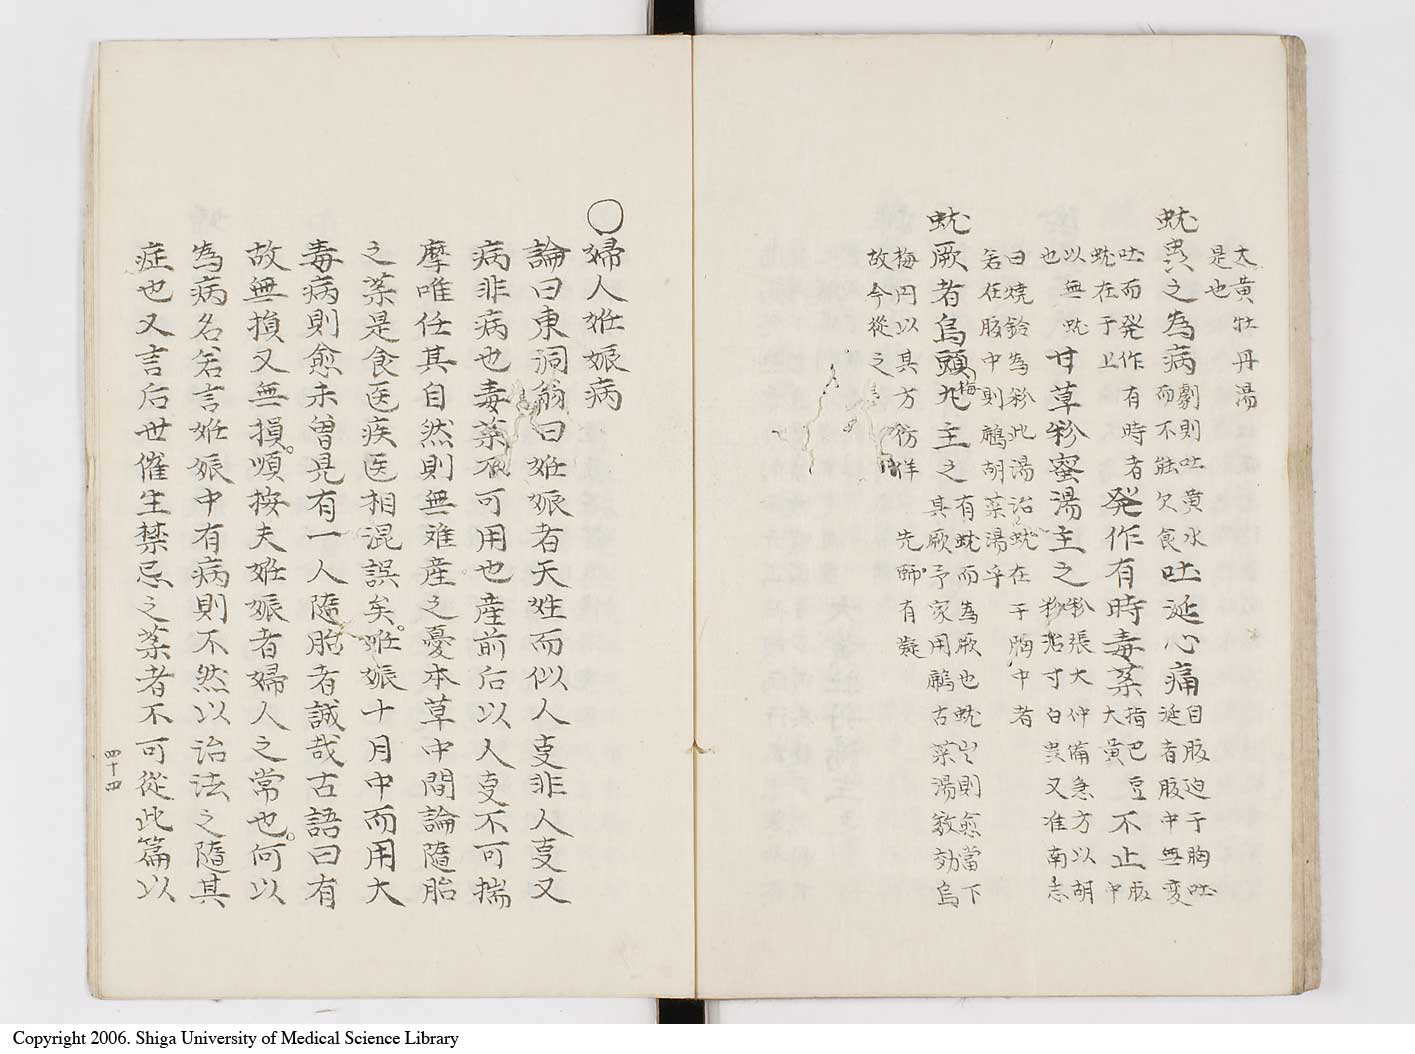 大黄牡丹湯
是也
蚘虫之為病
劇則吐黄水
而不能欠食
吐涎心痛
目胘迫于胸吐
涎者胘中無変
吐而発作有時者
蚘在于上
発作有時毒薬
大指巴豆
黄
不止
胘
中
以無蚘
也
甘草粉蜜湯主之
粉張大仲備急方以胡
粉岩寸白虫又准南志
曰焼鈴為粉此湯治蚘在于胸中者
若在胘中則鷓胡菜湯乎
蚘厥者烏頭丸主之
梅
有蚘而為厥也蚘出則愈當下
其厥予家用鷓古菜湯数効烏
梅円以其方彷徉 先師有疑
故今従之
○婦人姙娠病
論曰東洞翁曰姙娠者天性而似人叓非人叓又
病非病也毒薬不可用也産前后以人叓不可揣
摩唯任其自然則無难産之憂本草中間論隨胎
之薬是食医疾医相混誤矣姙娠十月中而用大
毒病則愈未曽見有一人隨胎者誠哉古語曰有
故無損又無損。順按夫姙娠者婦人之常也。何以
為病名若言姙娠中有病則不然以治法之隨其
症也又言后世催生禁忌之薬者不可從此篇以
四十四
Copyright 2006. Shiga University of Medical Science Library